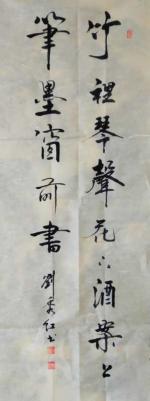 竹裡琴聲花下酒案上
筆墨窗前書
劉秀紅書